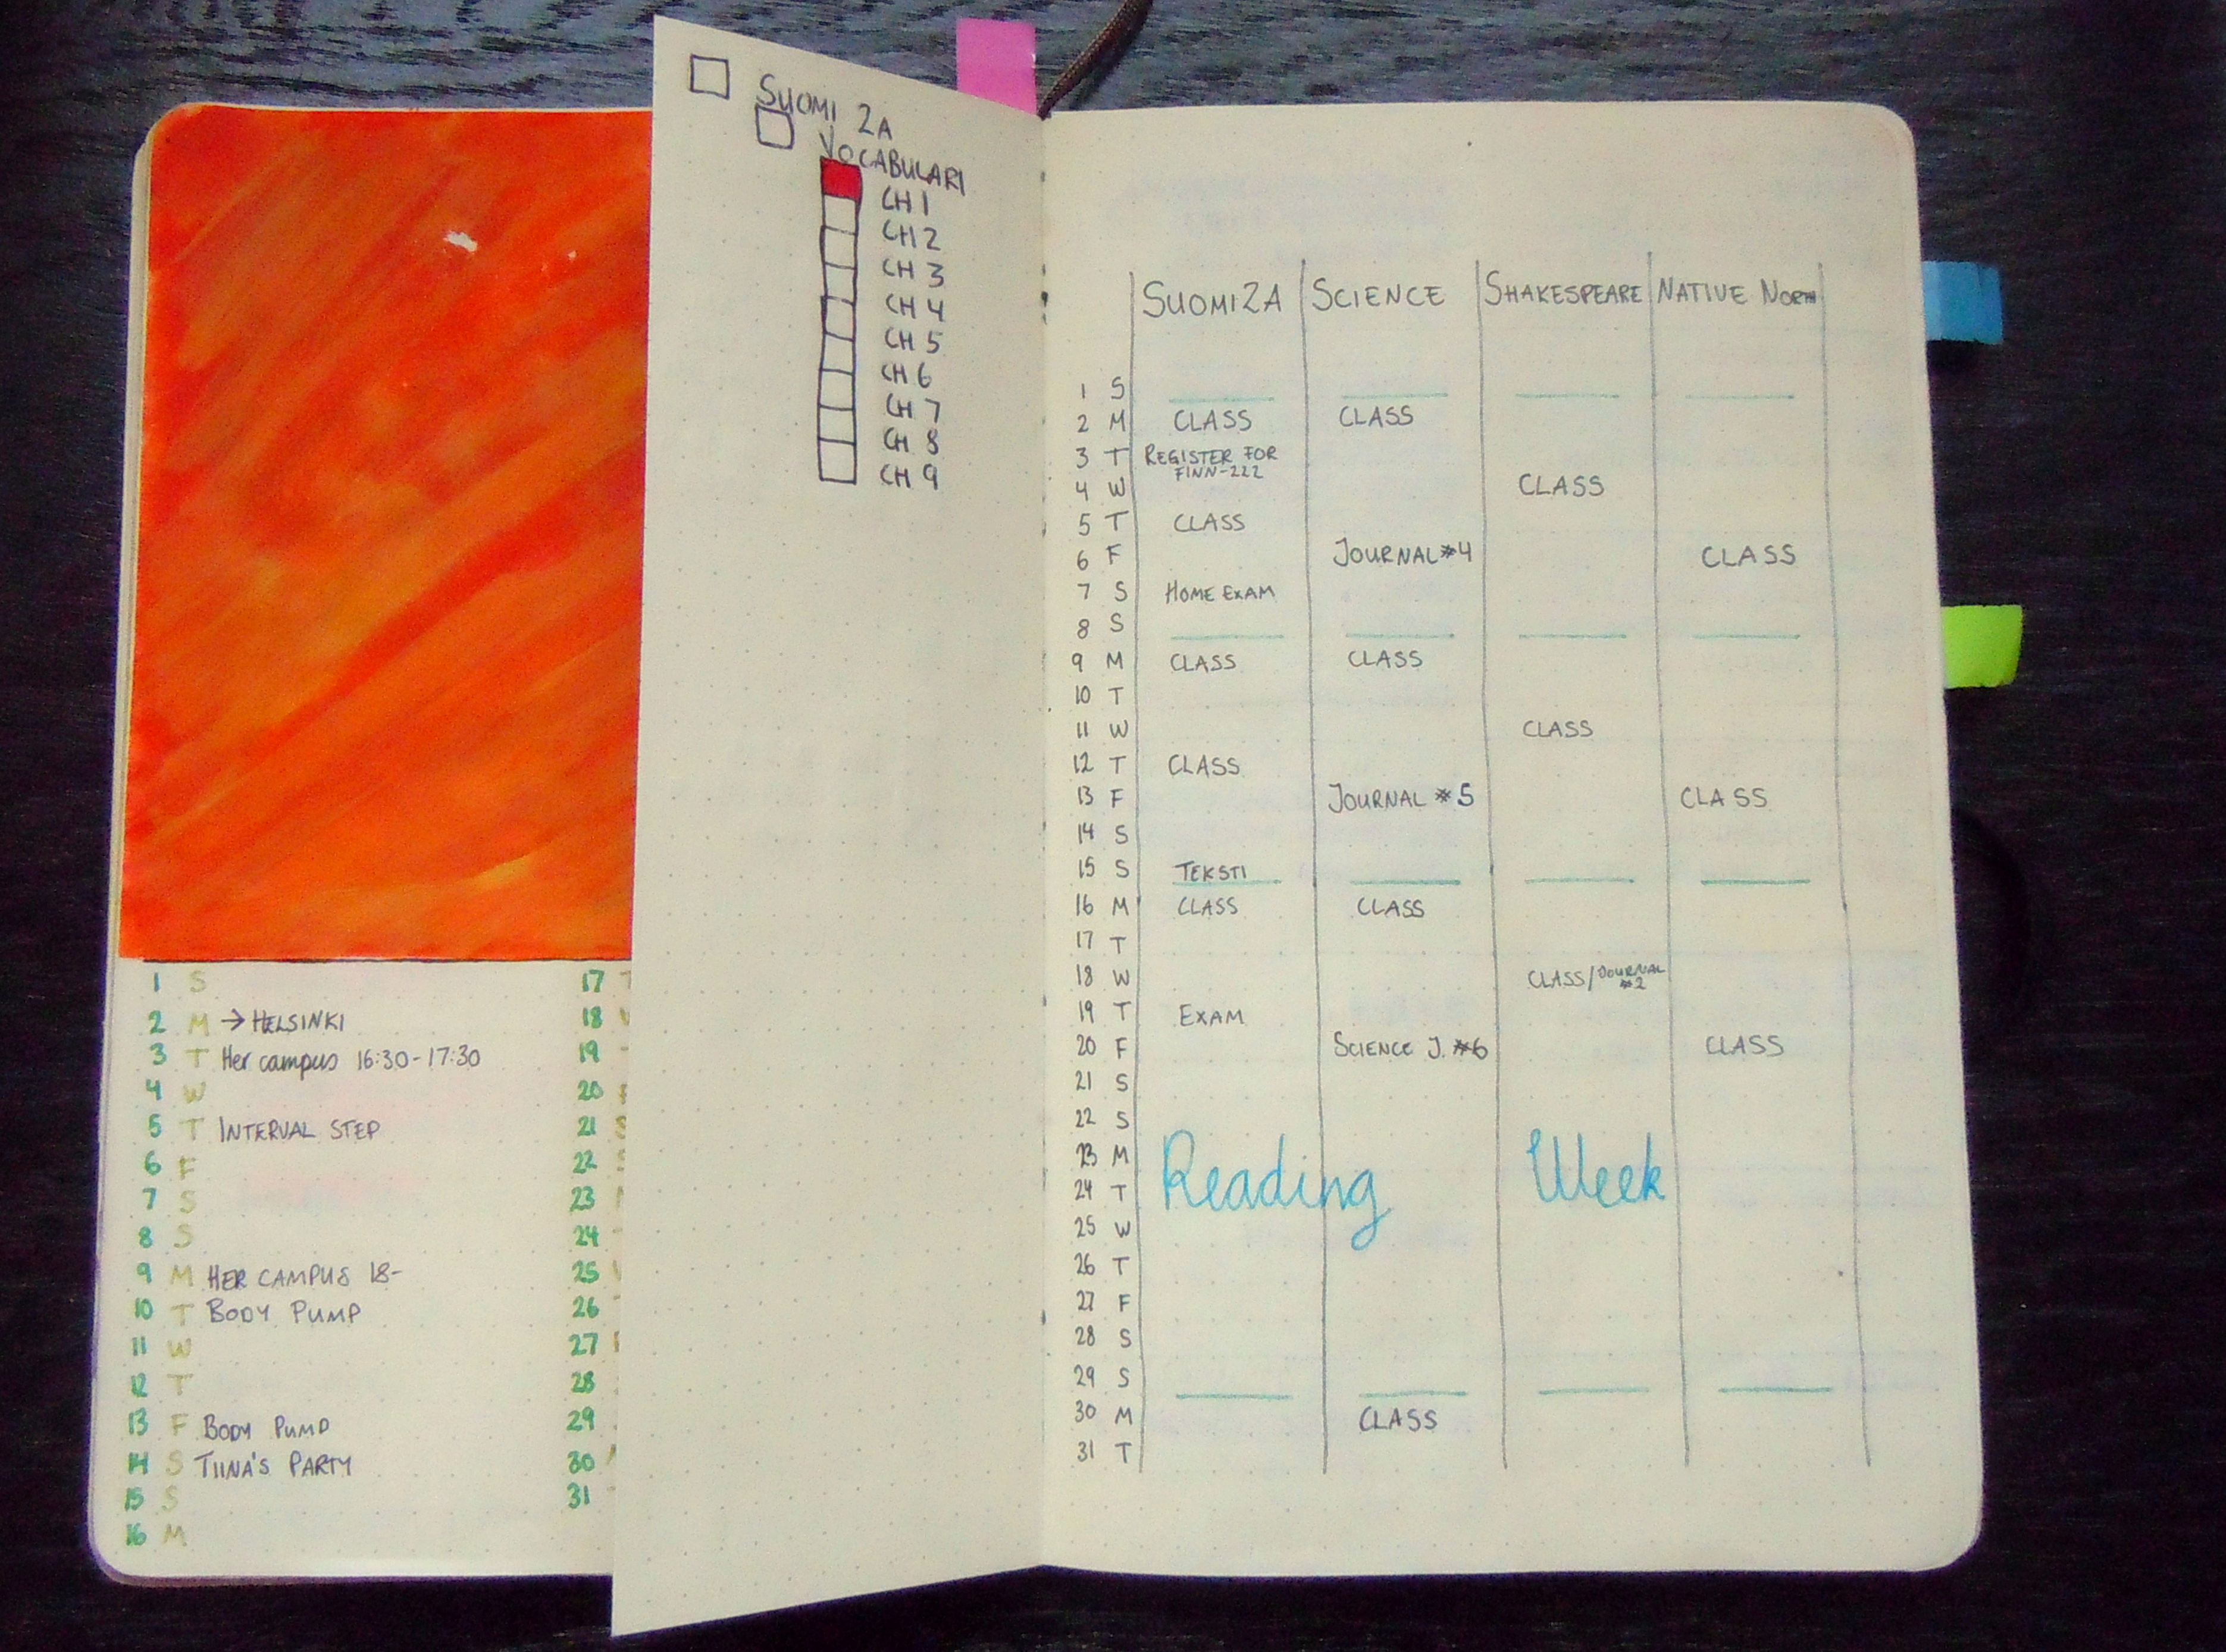 SUOMI 2A
VOCABULARI
CH 1
CH 2
CH 3
CH 4
CH 5
CH 6
CH 7
CH 8
CH 9
1 S
2 M → HELSINKI
3 T Her campus 16:30-17:30
4 W
5 T INTERVAL STEP
6 F
7 S
8 S
9 M HER CAMPUS 18-
10 T BODY PUMP
11 W
12 T
13 F BODY PUMP
14 S TIINA'S PARTY
15 S
16 M
17
18
19
20
21
22
23
24
25
26
27
28
29
30
31
SUOMI2A SCIENCE SHAKESPEARE NATIVE NORTH
1 S
2 M CLASS CLASS
3 T REGISTER FOR
FINN-222
4 W CLASS
5 T CLASS
6 F JOURNAL #4 CLASS
7 S HOME EXAM
8 S
9 M CLASS CLASS
10 T
11 W CLASS
12 T CLASS
13 F JOURNAL #5 CLASS
14 S
15 S TEKSTI
16 M CLASS CLASS
17 T
18 W CLASS/JOURNAL
#2
19 T EXAM
20 F SCIENCE J. #6 CLASS
21 S
22 S
23 M
24 T Reading Week
25 W
26 T
27 F
28 S
29 S
30 M CLASS
31 T